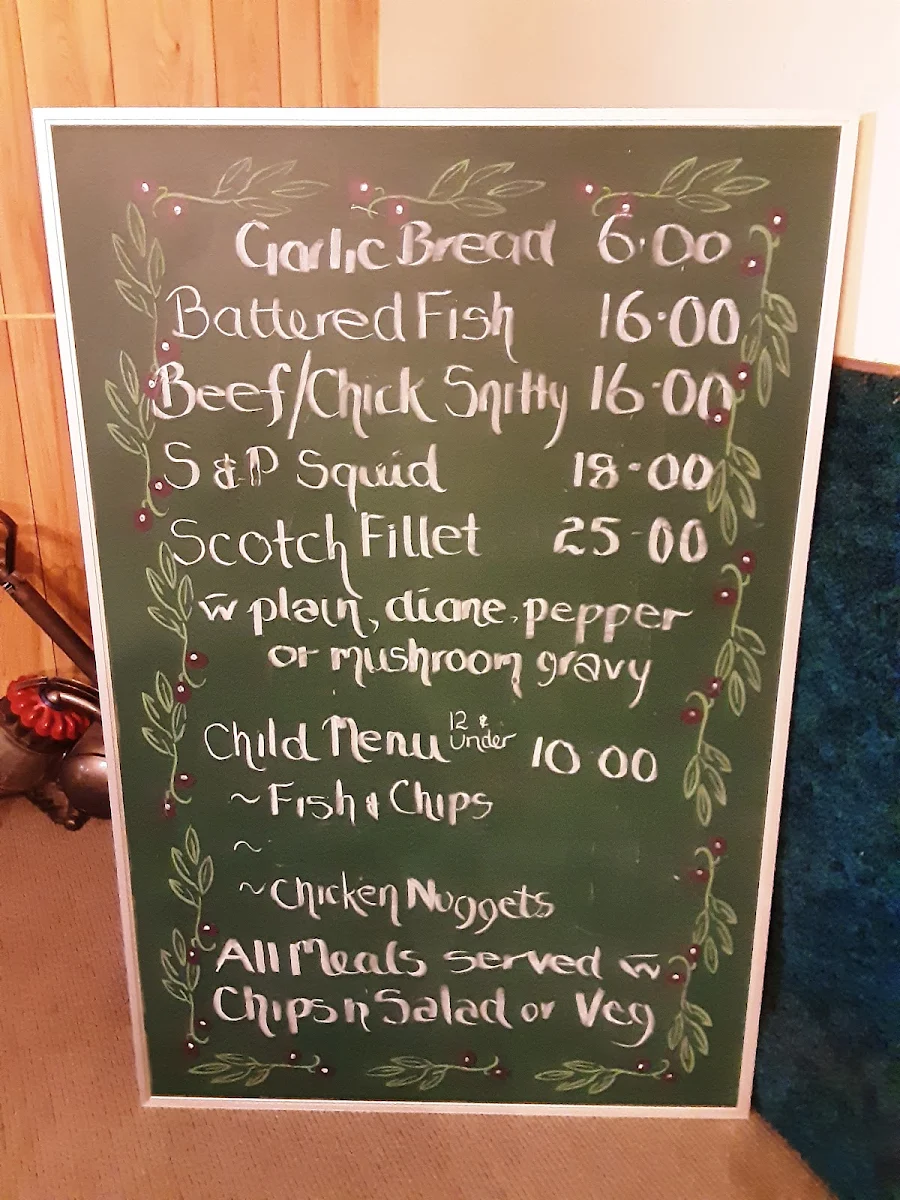 Garlic Bread 6.00
Battered Fish 16.00
Beef/Chick Snitty 16.00
S & P Squid 18.00
Scotch Fillet 25.00
w̄ plain, diane, pepper
or mushroom gravy
Child Menu 12 & Under 10 00
~ Fish & Chips
~
~ Chicken Nuggets
All Meals served w̄
Chips n' Salad or Veg